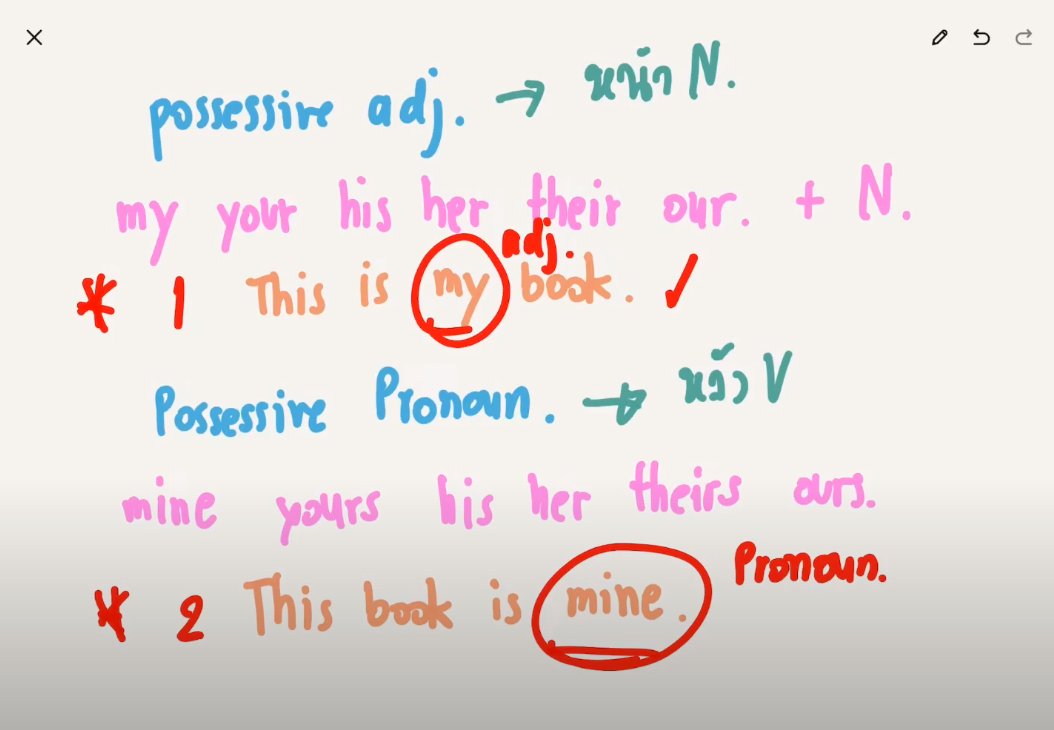 possessive adj. → หน้า N.
my your his her their our. + N.
adj.
* 1 This is my book. ✓
Possessive Pronoun. → หลัง V
mine yours his her theirs ours.
Pronoun.
* 2 This book is mine.